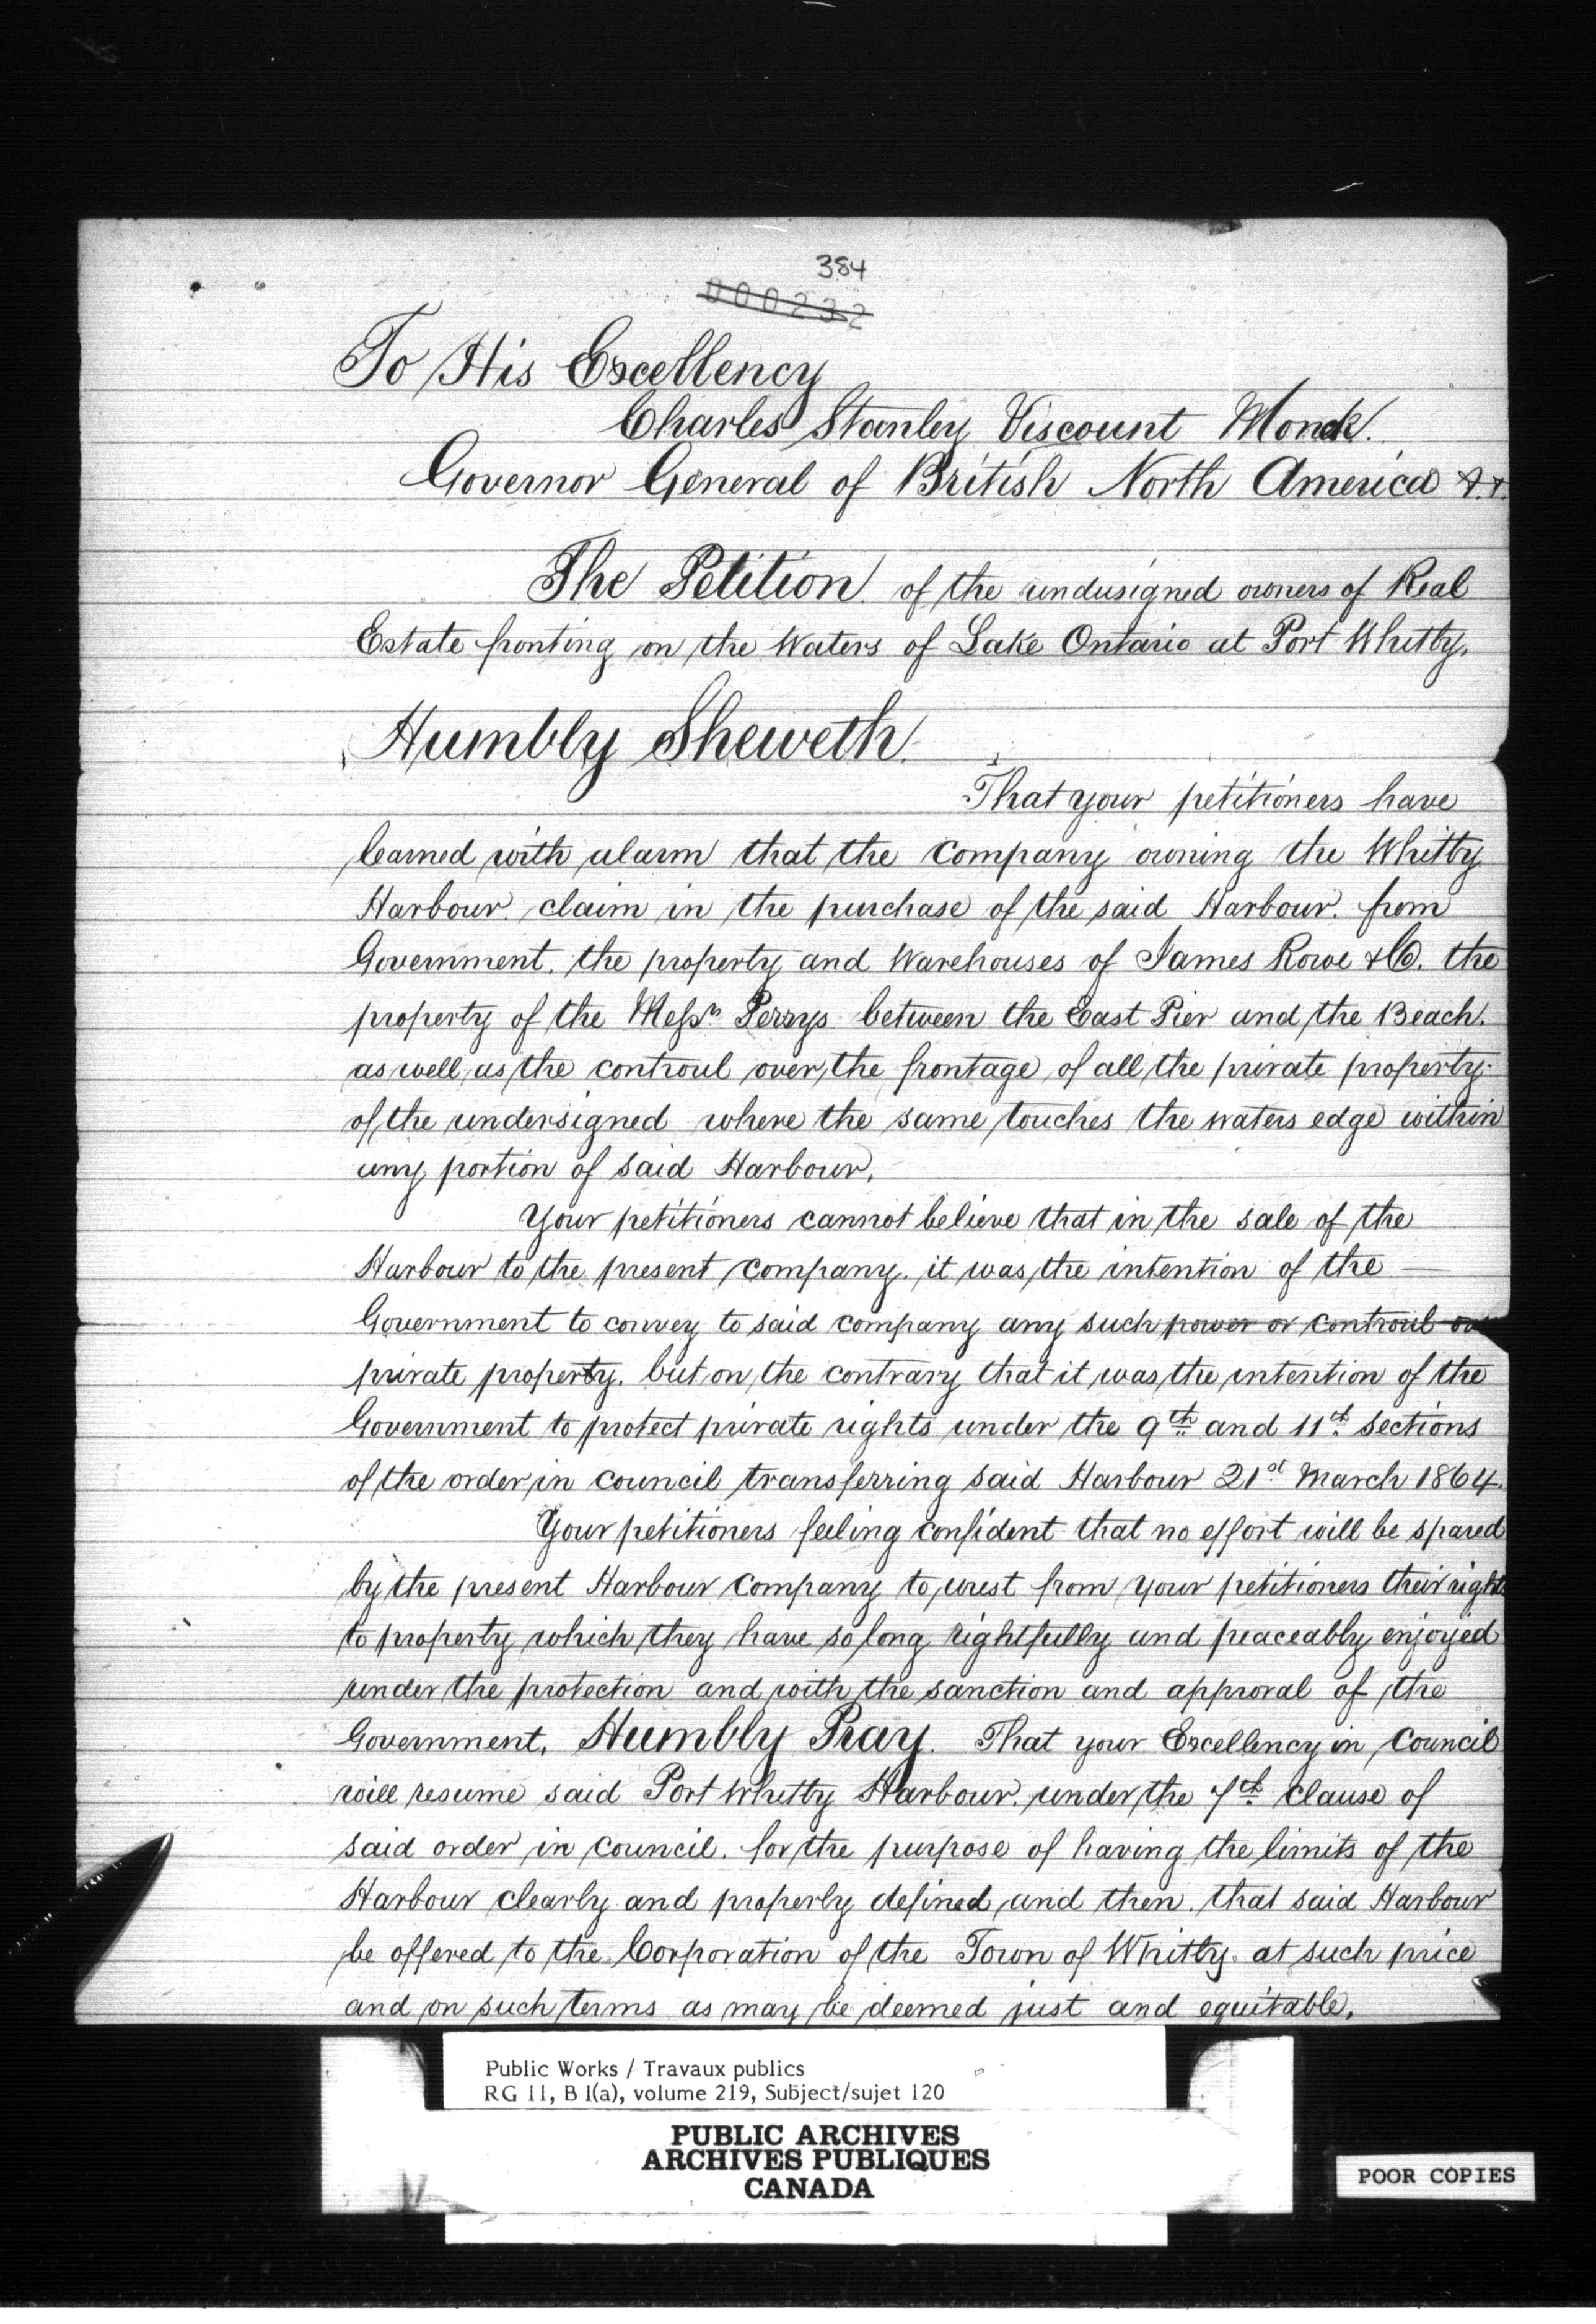 384
000232
To His Excellency
Charles Stanley Viscount Monck.
Governor General of British North America &.&.
The Petition of the undersigned owners of Real
Estate fronting on the Waters of Lake Ontario at Port Whitby.
Humbly Sheweth.
That your petitioners have
learned with alarm that the Company owning the Whitby
Harbour. claim in the purchase of the said Harbour. from
Government. the property and Warehouses of James Rowe & Co. the
property of the Messrs Perrys between the East Pier and the Beach.
as well as the controul over the frontage of all the private property
of the undersigned where the same touches the waters edge within
any portion of said Harbour.
Your petitioners cannot believe that in the sale of the
Harbour to the present company. it was the intention of the —
Government to convey to said company any such power or controul over
private property. but on the contrary that it was the intention of the
Government to protect private rights under the 9th and 11th sections
of the order in council transferring said Harbour 21st March 1864.
Your petitioners feeling confident that no effort will be spared
by the present Harbour Company to wrest from your petitioners their rights
to property which they have so long rightfully and peaceably enjoyed
under the protection and with the sanction and approval of the
Government, Humbly Pray. That your Excellency in Council
will resume said Port Whitby Harbour. under the 7th clause of
said order in council. for the purpose of having the limits of the
Harbour clearly and properly defined and then. that said Harbour
be offered to the Corporation of the Town of Whitby at such price
and on such terms as may be deemed just and equitable.
Public Works / Travaux publics
RG 11, B 1(a), volume 219, Subject/sujet 120
PUBLIC ARCHIVES
ARCHIVES PUBLIQUES
CANADA
POOR COPIES